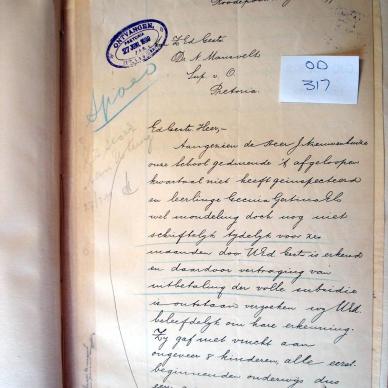 ONTVANGEN
PRETORIA
27 JUN. 1899
Spoed
OD
317
ZEd Gestr
Dr. N. Mansvelt
Sup. v. O.
Pretoria.
Ed Gestr. Heer,-
Aangezien de Heer J.
onze School gedurende 't afgeloopen
kwartaal niet heeft geinspecteerd
en leerlinge
wel mondeling doch nog niet
schriftelijk tydelyk voor zes
maanden door UEd Gestr is erkend
en daardoor vertraging van
uitbetaling der volle subsidie
is ontstaan verzoeken wy UEd.
beleefdelyk om hare erkenning.
Zy gaf met vrucht aan
ongeveer 8 kinderen, alle eerst-
beginnenden onderwijs dus